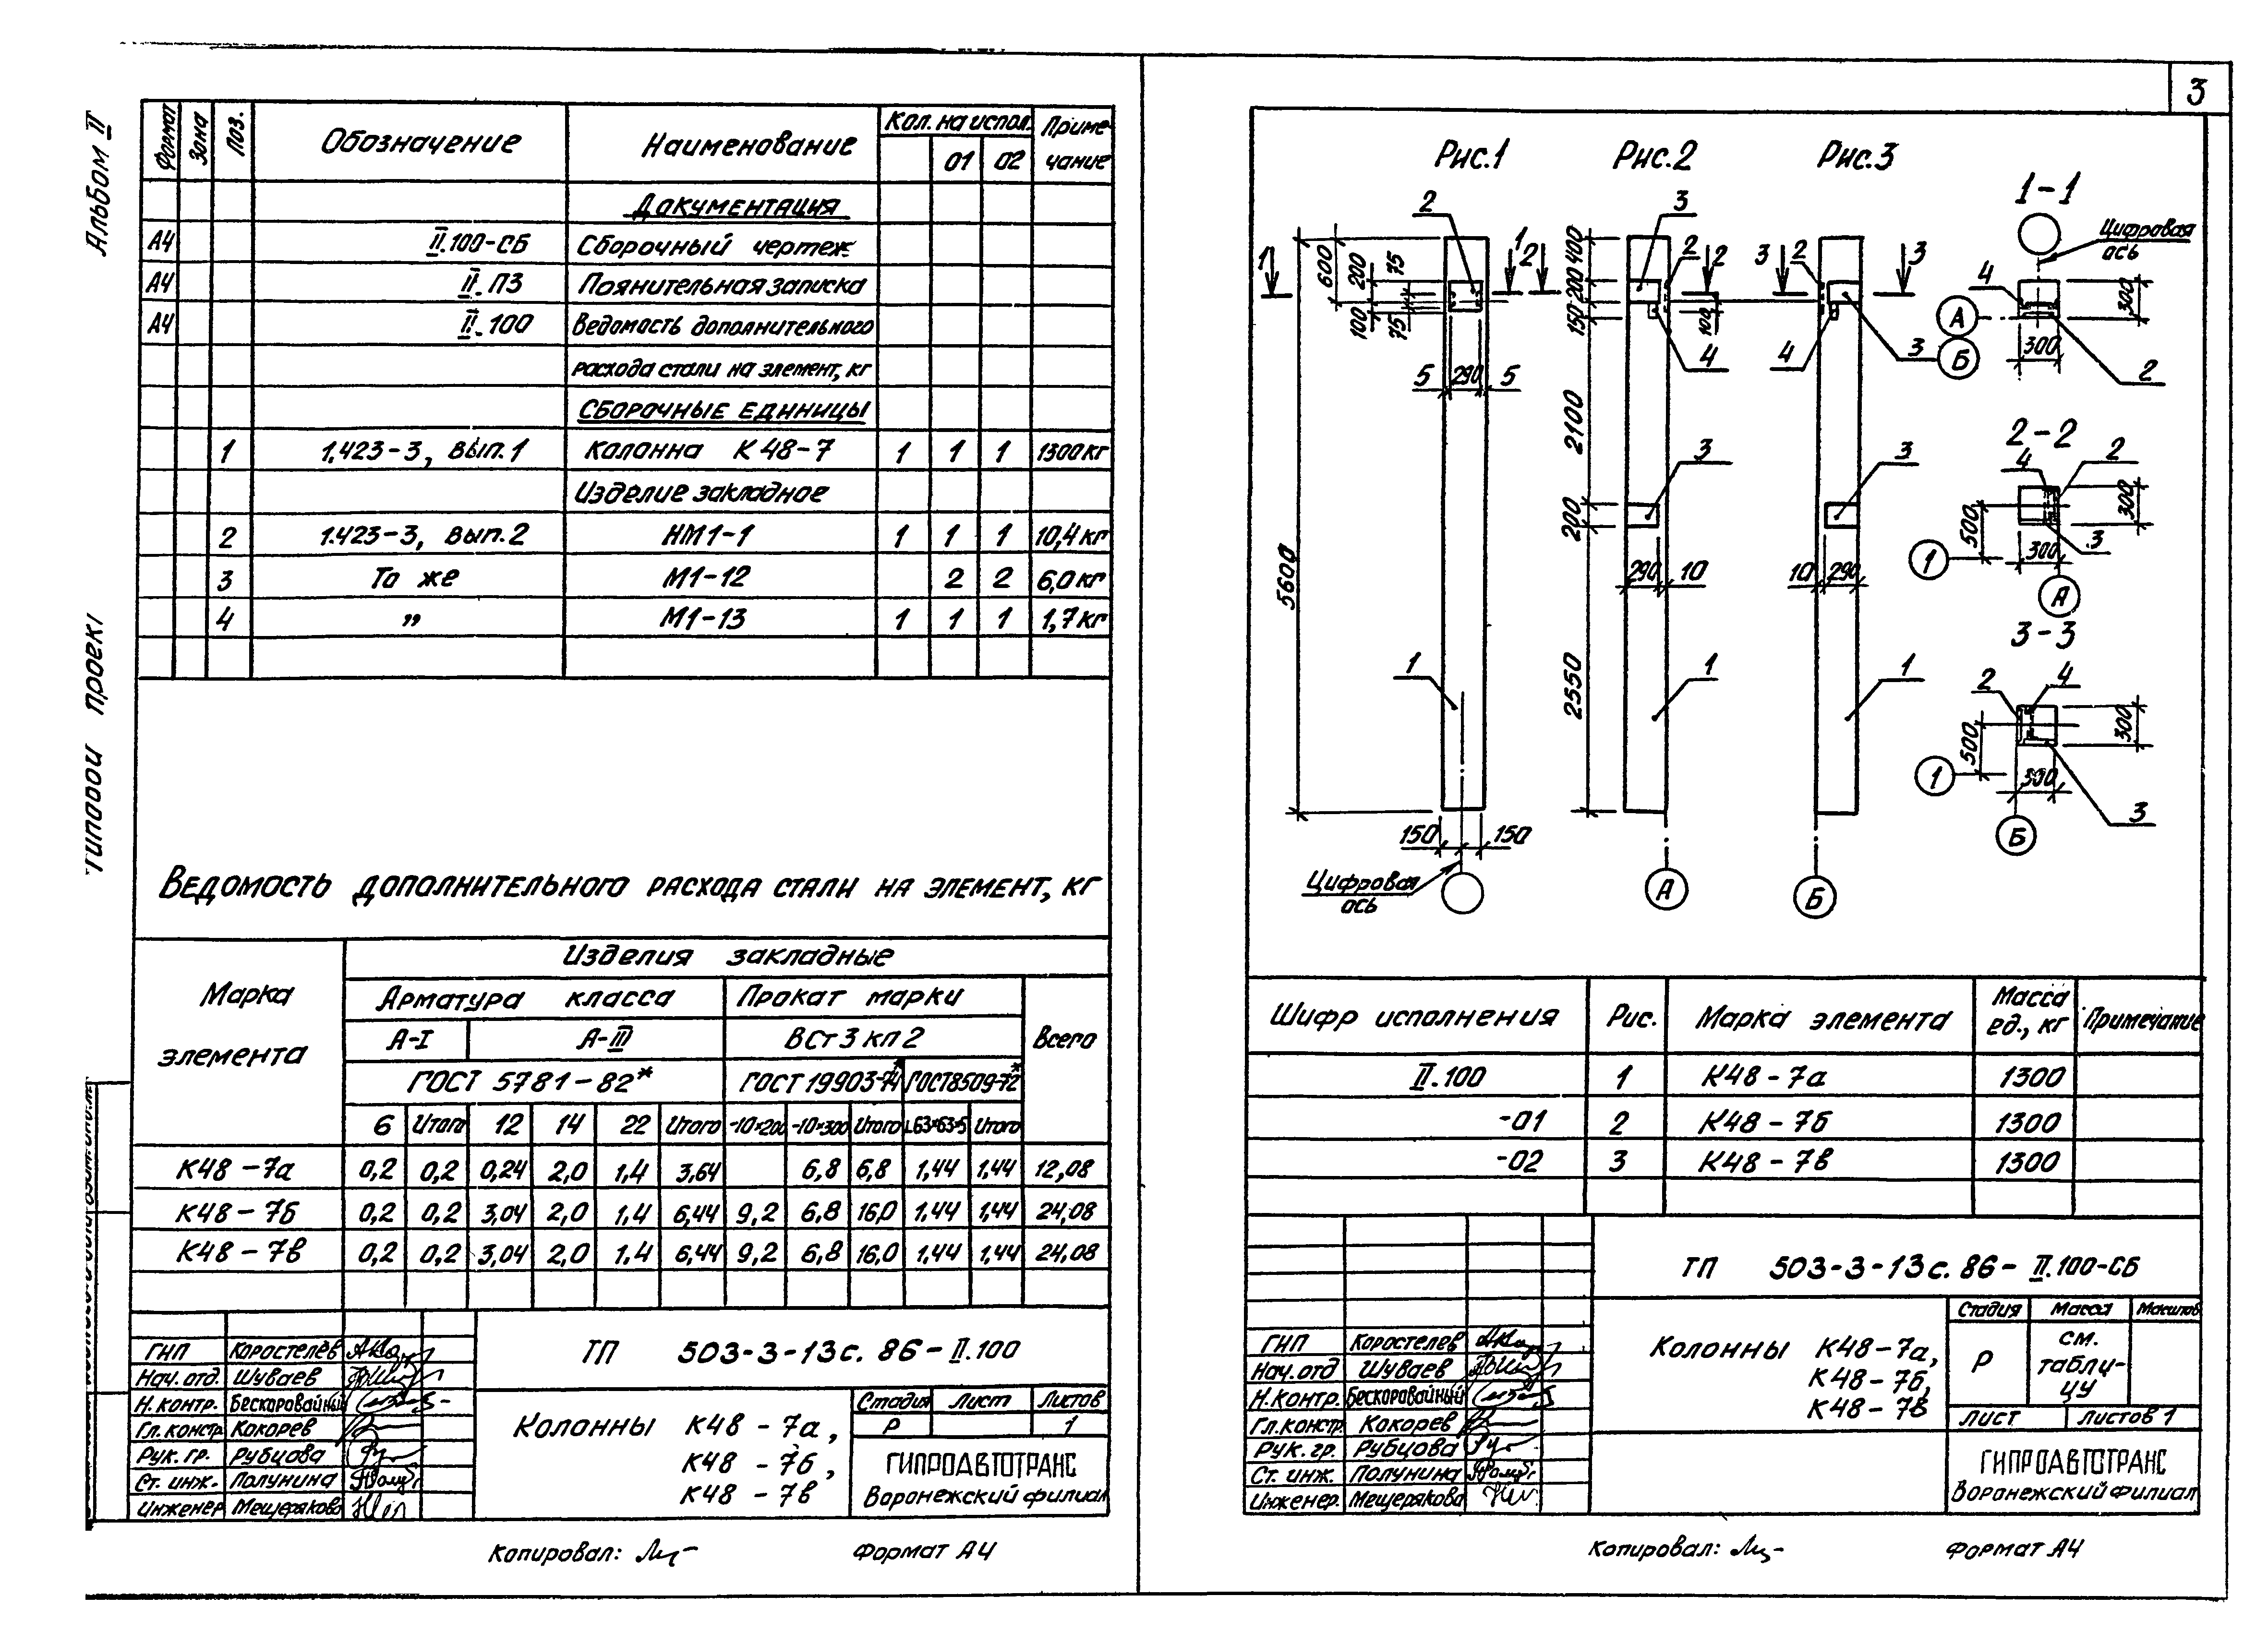 Альбом II
Типовой проект
Формат Зона Поз. Обозначение Наименование Кол. на испол. Приме-
01 02 чание
Документация
А4 II.100-СБ Сборочный чертеж
А4 II.ПЗ Пояснительная записка
А4 II.100 Ведомость дополнительного
расхода стали на элемент, кг
Сборочные единицы
1 1.423-3, вып.1 Колонна К 48-7 1 1 1 1300 кг
Изделие закладное
2 1.423-3, вып.2 НМ1-1 1 1 1 10,4 кг
3 То же М1-12 2 2 6,0 кг
4 „ М1-13 1 1 1 1,7 кг
Ведомость дополнительного расхода стали на элемент, кг
Марка элемента Изделия закладные
Арматура класса Прокат марки Всего
А-I А-III ВСт 3 кп 2
ГОСТ 5781-82* ГОСТ 19903-74* ГОСТ 8509-72*
6 Итого 12 14 22 Итого -10×200 -10×300 Итого L63×63×5 Итого
К48-7а 0,2 0,2 0,24 2,0 1,4 3,64 6,8 6,8 1,44 1,44 12,08
К48-7б 0,2 0,2 3,04 2,0 1,4 6,44 9,2 6,8 16,0 1,44 1,44 24,08
К48-7в 0,2 0,2 3,04 2,0 1,4 6,44 9,2 6,8 16,0 1,44 1,44 24,08
ТП 503-3-13с.86-II.100
ГИП Коростелев
Нач.отд. Шуваев
Н.контр. Бескоровайный
Гл.констр Кокорев
Рук. гр. Рубцова
Ст. инж. Полунина
Инженер Мещерякова
Колонны К48-7а,
К48-7б,
К48-7в
Стадия Лист Листов
Р 1
ГИПРОАВТОТРАНС
Воронежский филиал
Копировал:
Формат А4
3
Рис.1 Рис.2 Рис.3
1-1
2 3
1 1 2 2 2 3 2 3
600 200 75
100 75
5 290 5
5600
1
150 150
Цифровая
ось
400
200
150
2100
200
2550
100
4 4 3
3 3
290 10 10 290
1 1
А Б
Цифровая
ось
4
А
Б
300
300
2
2-2
4 2
500
300
300
3
1
А
3-3
2 4
500
300
300
3
1
Б
Шифр исполнения Рис. Марка элемента Масса ед., кг Примечание
II.100 1 К48-7а 1300
-01 2 К48-7б 1300
-02 3 К48-7в 1300
ТП 503-3-13с.86-II.100-СБ
ГИП Коростелев
Нач.отд Шуваев
Н.контр. Бескоровайный
Гл.констр. Кокорев
Рук. гр. Рубцова
Ст. инж. Полунина
Инженер. Мещерякова
Колонны К48-7а,
К48-7б,
К48-7в
Стадия Масса Масштаб
Р см.
табли-
цу
Лист Листов 1
ГИПРОАВТОТРАНС
Воронежский филиал
Копировал:
Формат А4